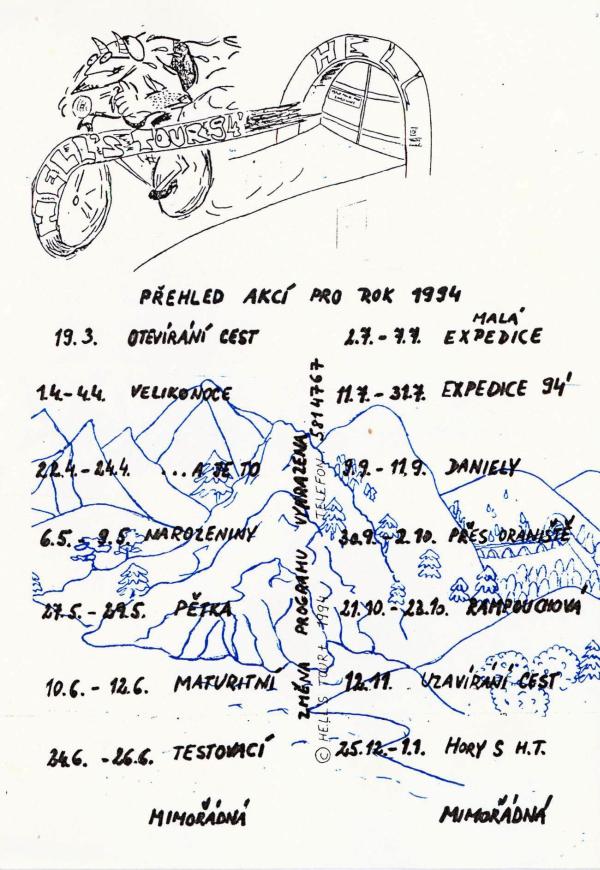 HELL
HELL'S TOURS 94'
PŘEHLED AKCÍ PRO ROK 1994
19.3. OTEVÍRÁNÍ CEST
1.4.-4.4. VELIKONOCE
22.4.-24.4. ...A JE TO
6.5.-9.5. NAROZENINY
27.5.-29.5. PĚTKA
10.6.-12.6. MATURITNÍ
24.6.-26.6. TESTOVACÍ
MIMOŘÁDNÁ
ZMĚNA PROGRAMU VYHRAZENA
© HELL'S TOUR+ 1994 TELEFON 5814767
2.7.-7.7. MALÁ EXPEDICE
11.7.-31.7. EXPEDICE 94'
9.9.-11.9. DANIELY
30.9.-2.10. PŘES ORANIŠTĚ
21.10.-23.10. RAMPOUCHOVÁ
12.11. UZAVÍRÁNÍ CEST
25.12.-1.1. HORY S H.T.
MIMOŘÁDNÁ